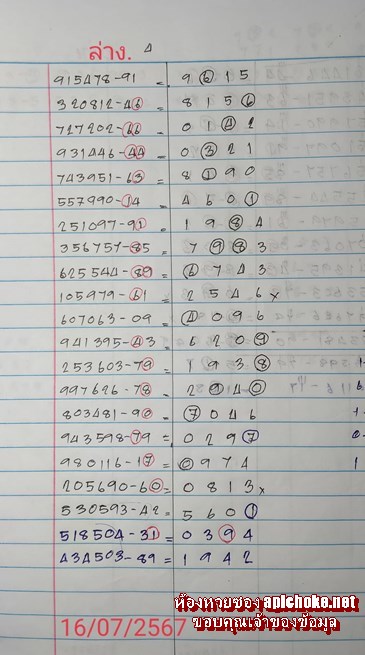 ล่าง. 4
915478-91 = 9 6 1 5
320812-46 = 8 1 5 6
727202-66 = 0 1 4 2
931446-44 = 0 3 2 1
743951-63 = 8 1 9 0
557990-14 = 4 6 0 1
251097-91 = 1 9 8 4
356757-85 = 7 9 8 3
625544-89 = 6 7 4 3
105979-61 = 2 5 4 6 x
607063-09 = 4 0 9 6
941395-43 = 6 2 0 9
253603-79 = 1 9 3 8
997626-78 = 2 9 4 0
803481-90 = 7 0 4 6
943598-79 = 0 2 9 7
980116-17 = 0 9 7 4
205690-60 = 0 8 1 3 x
530593-42 = 5 6 0 1
518504-31 = 0 3 9 4
434503-89 = 1 9 4 2
ห้องหวยซอง aplchoke.net
16/07/2567 ขอบคุณเจ้าของข้อมูล